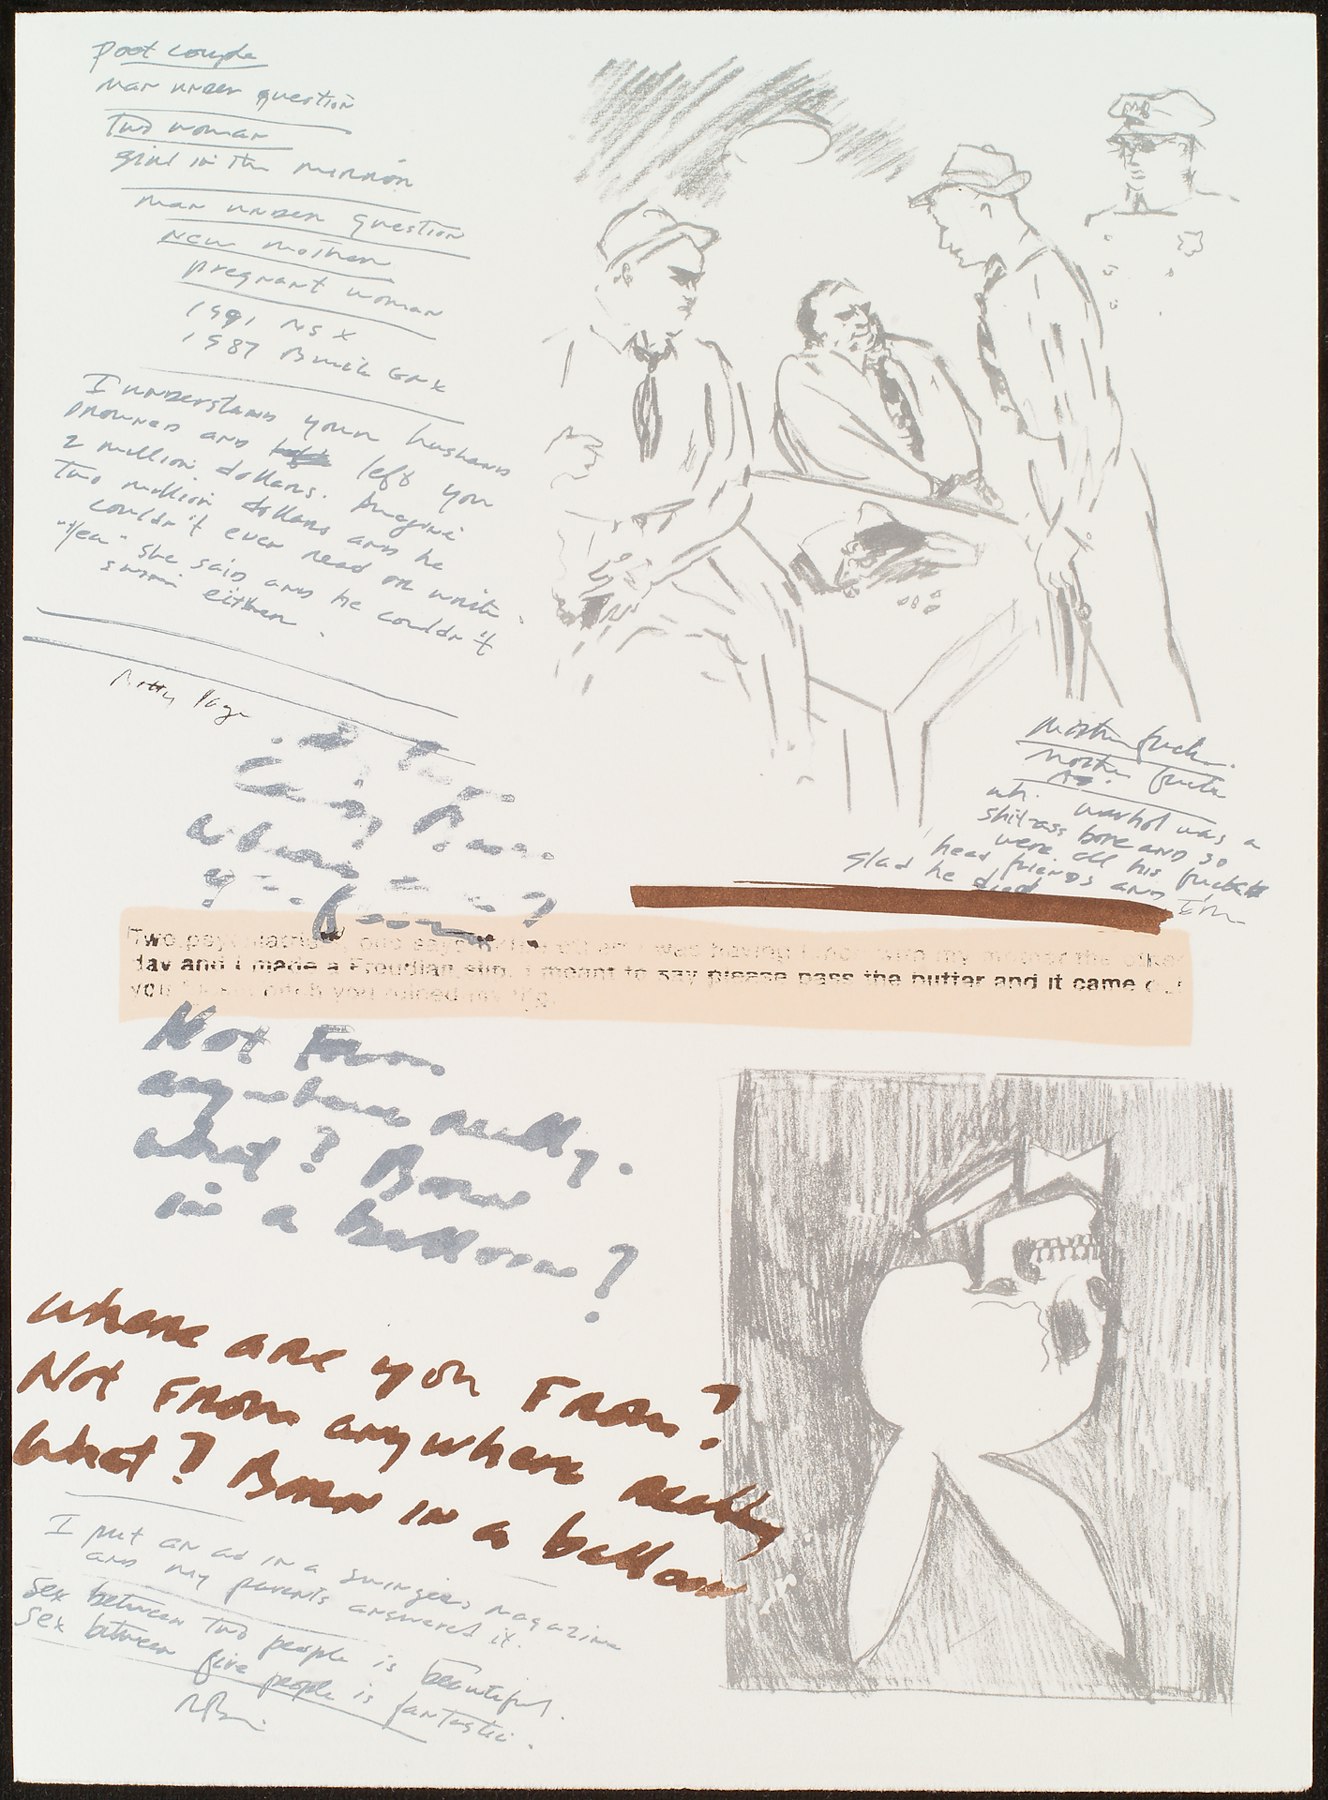 Poot couple
man under question
Two woman
girl in the mirror
man under question
new mother
pregnant woman
1991 NSX
1987 Buick GNX
I understand your husband
drowned and left you
2 million dollars. Imagine
Two million dollars and he
couldn't even read or write.
"Yea" she said and he couldn't
swim either.
Betty Page
Mother fuck.
Mother fuck
warhol was a
shit-ass bore and so
were all his fucking
head friends and I'm
glad he died
Two psychiatrists, one says was having lunch with my mother the other
day and I made a Freudian slip. I meant to say please pass the butter and it came out
you bitch you ruined my life.
Not From
anywhere really.
what? Born
in a balloon?
where are you From?
Not From anywhere really
What? Born in a balloon
I put an ad in a swingers magazine
and my parents answered it.
Sex between two people is beautiful.
Sex between five people is fantastic.